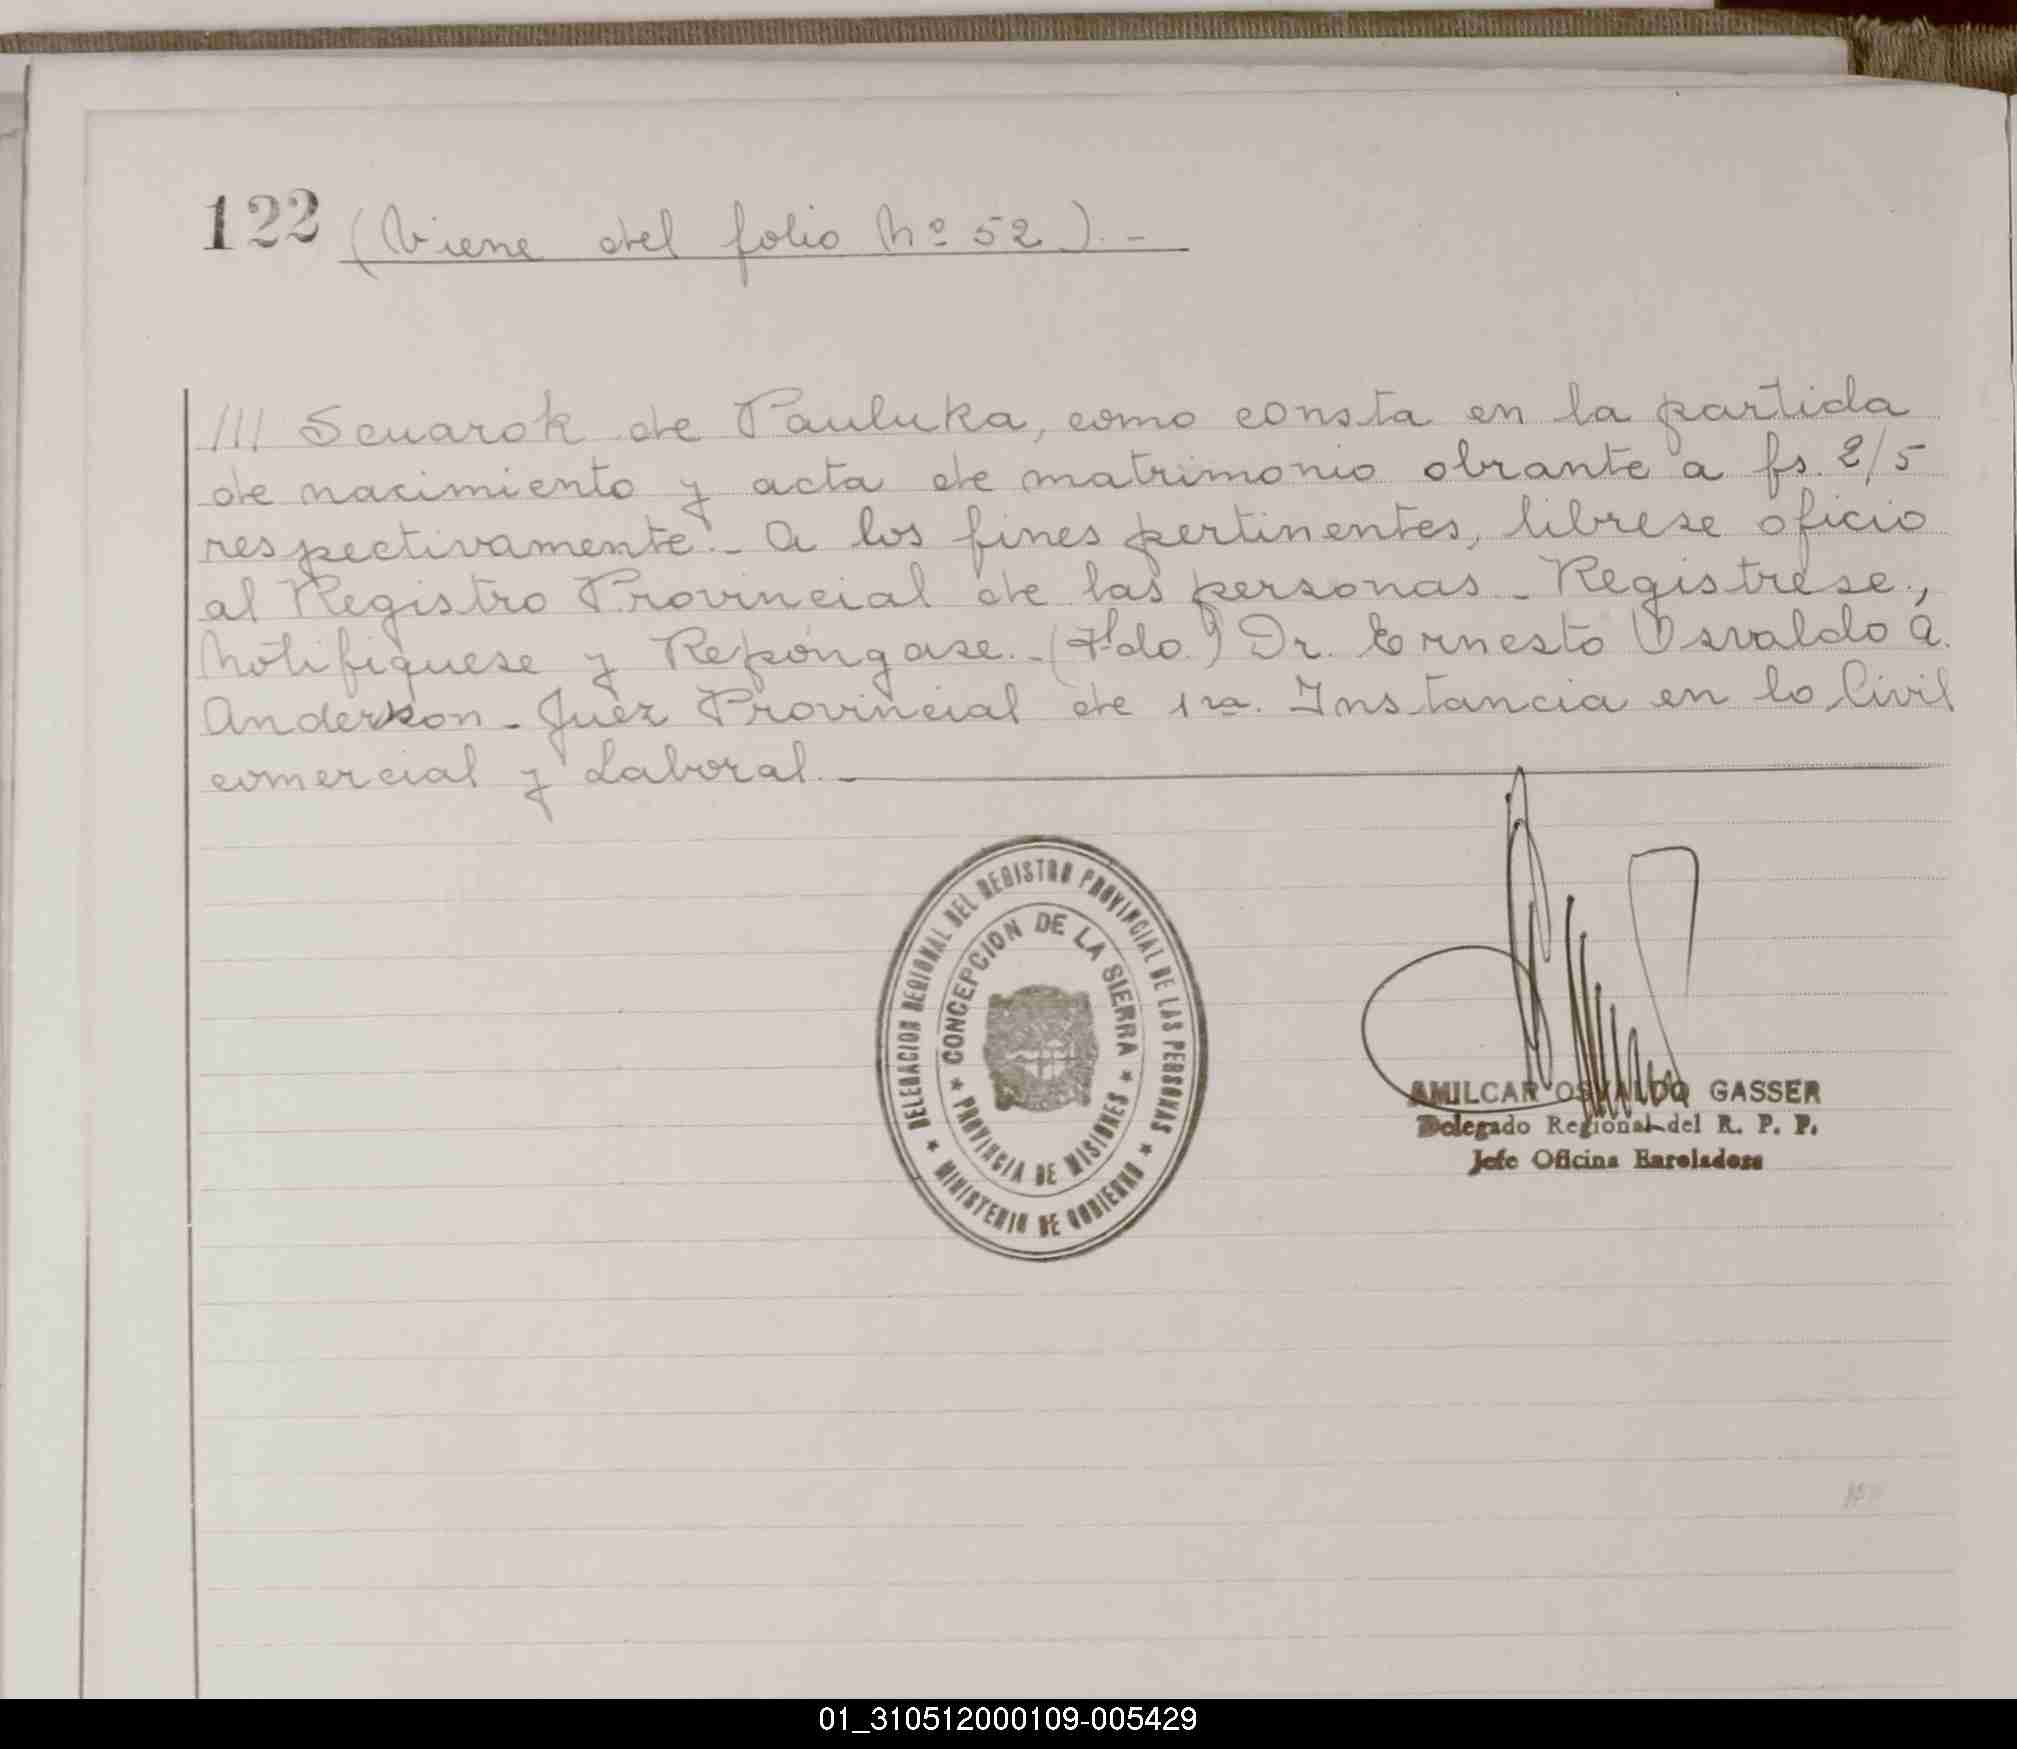 122 (Viene del folio Nº 52).-
/// Scuarok de Pauluka, como consta en la partida
de nacimiento y acta de matrimonio obrante a fs. 2/5
respectivamente.- A los fines pertinentes, librese oficio
al Registro Provincial de las personas - Registrese,
Notifiquese y Repóngase.- (Fdo.) Dr. Ernesto Osvaldo A.
Anderson - Juez Provincial de 1ra. Instancia en lo Civil
comercial y Laboral.-
DELEGACION REGIONAL DEL REGISTRO PROVINCIAL DE LAS PERSONAS
★ MINISTERIO DE GOBIERNO ★
★ CONCEPCION DE LA SIERRA ★
PROVINCIA DE MISIONES
AMILCAR OSVALDO GASSER
Delegado Regional del R. P. P.
Jefe Oficina Enroladora
01_310512000109-005429